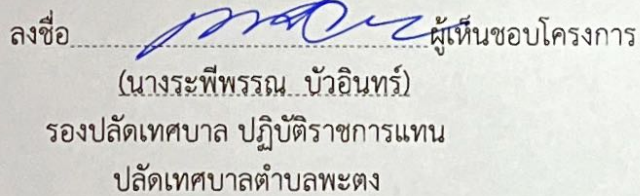 ลงชื่อ ผู้เห็นชอบโครงการ
(นางระพีพรรณ บัวอินทร์)
รองปลัดเทศบาล ปฏิบัติราชการแทน
ปลัดเทศบาลตำบลพะตง